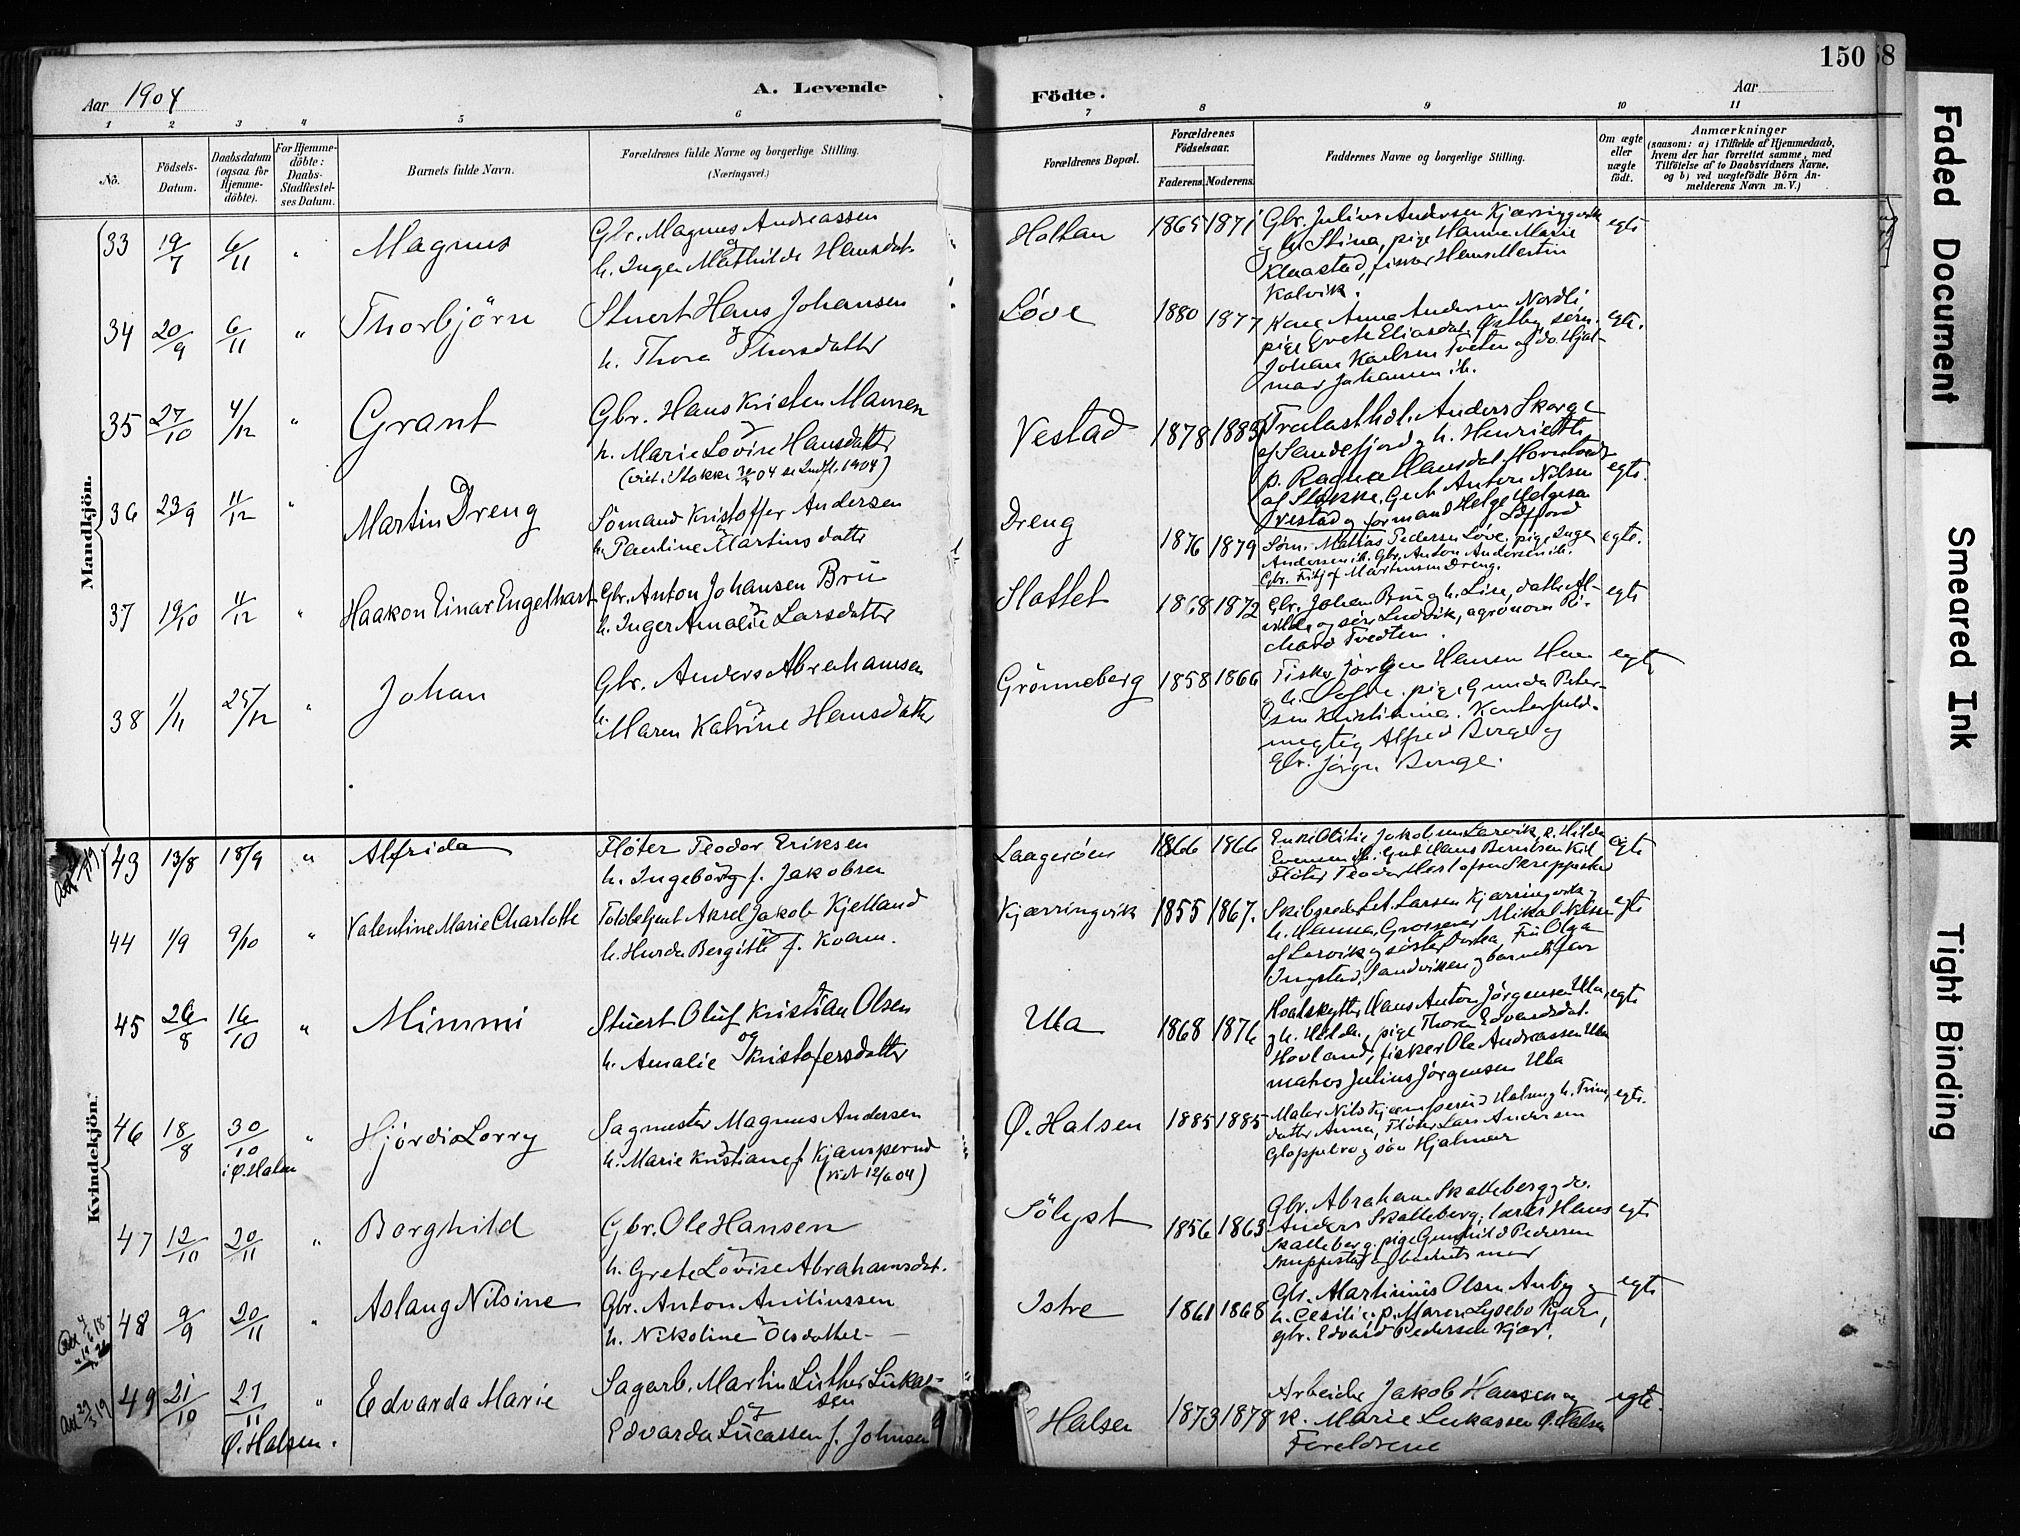 Aar 1904
A. Levende
Födte.
Aar
150
58
1 2 3 4 5 6 7 8 9 10 11
No.
Födsels-Datum.
Daabsdatum (ogsaa for Hjemme-döbte).
For Hjemme-döbte: Daabs-Stadfæstel-ses Datum.
Barnets fulde Navn.
Forældrenes fulde Navne og borgerlige Stilling.
(Næringsvei.)
Forældrenes Bopæl.
Forældrenes Födselsaar.
Faderens. Moderens.
Faddernes Navne og borgerlige Stilling.
Om ægte eller uægte födt.
Anmærkninger
(saasom: a) i Tilfælde af Hjemmedaab,
hvem der har forrettet samme, med
Tilföielse af to Daabsvidners Navne,
og b) ved uægtefödte Börn An-
melderens Navn m.V.)
Mandkjön.
33 19/7 6/11 " Magnus
Gbr. Magnus Andreassen
og
h. Inger Mathilde Hansdat.
Haltan 1865 1871
Gbr. Julius Andersen Kjærringvik
og h. Stina, pige Hanne Marie
Klaastad, fisker Hans Martin
Kalvik.
egte
34 20/9 6/11 " Thorbjörn
Stuert Hans Johansen
og
h. Thora Thorsdatter
Løve 1880 1877
Kone Anna Andersen Nordli
pige Grete Eliasdat. Østby, søm.
Johan Karlsen Tveten og do. Hjal-
mar Johannesen ib.
egte.
35 27/10 4/12 " Grant
Gbr. Hans Kristen Mansen
og
h. Marie Lovise Hansdatter
(viet i Stokke 04 se 1904)
Vestad 1878 1885
Trælasthdl. Anders Skorge
af Sandefjord og h. Henriette
p. Ragna Hansdat.
af Stokke. Gut Anton Nilsen
Vestad og formand Helge Helgesen
egte.
36 23/9 11/12 " Martin Dreng
Sömand Kristoffer Andersen
og
h. Pauline Martinsdatter
Dreng 1876 1879
Søm. Matias Pedersen Løve. pige Inga
Andersen ib. Gbr. Anton Andersen ib.
Gbr. Fritjof Martinsen Dreng.
egte.
37 19/10 11/12 " Haakon Einar Engelhart
Gbr. Anton Johansen Bru
og
h. Inger Amalie Larsdatter
Slottet 1868 1872
Gbr. Johan Bru og h. Lise, datter Al-
vilde og søn Ludvik, agronom Ri-
chard Tvedten.
egte
38 1/11 25/12 " Johan
Gbr. Anders Abrahamsen
og
h. Maren Katrine Hansdatter
Grönneberg 1858 1866
Fisker Jørgen Hansen
og h. Sofie. pige Gunda Peter-
sen Kristiania. Kontorfuld-
megtig Alfred Berge og
Gbr. Jørgen Berge.
egte
Kvindekjön.
43 13/8 18/9 " Alfrida
Flöter Teodor Eriksen
h. Ingeborg f. Jakobsen
Laagerøen 1866 1866
Enke Olitie Jakobsen Larvik, p. Hilda
Evensen ib. Gut Hans Berntsen
Flöter Teodor Skreppestad
egte
44 1/9 9/10 " Valentine Marie Charlotte
Toldbetjent Aksel Jakob Kjelland
h. Hurda Bergitte f. Kvam.
Kjærringvik 1855 1867.
Skibsreder L.A. Larsen Kjærringvik og
h. Hanna, Grosserer Mikal Nilsen
af Larvik og søster Dorthea, Frü Olga
Ingstad, Sandviken og barnets far
egte
45 26/8 16/10 " Mimmi
Stuert Oluf Kristian Olsen
og
h. Amalie Kristofersdatter
Ula 1868 1876
Hvalskytter Hans Anton Jørgensen Ula,
og h. Hilda, pige Thora Edvardsdat.
Hovland, fisker Ole Andreassen Ula
matros Julius Jørgensen Ula
egte
46 18/8 30/10 i Ø. Halsen " Hjördis Lorry
Sagmester Magnus Andersen
h. Marie Kristiane f. Kjæmperud
(viet 12/6 04)
Ø. Halsen 1885 1885
Maler Nils Kjæmperud Halsen og h. Trine,
datter Anna, Fløter Lars Andersen
Gloppebro og søn Hjalmar
egte.
47 12/10 20/11 " Borghild
Gbr. Ole Hansen
og
h. Grete Lovise Abrahamsdat.
Sölyst 1856 1863
Gbr. Abraham Skalleberg og do.
Anders Skalleberg, lærer Hans
Skalleberg. pige Gunhild Pedersen
Skreppestad og barnets mor
egte
48 9/9 20/11 " Aslaug Nilsine
Gbr. Anton Antiliussen
og
h. Nikoline Olsdatter
Istre 1861 1868
Gbr. Martinius Olsen Auby og
h. Cesilie; p. Maren Lysebo Kjær,
gbr. Edvard Pedersen Kjær.
egte
49 21/10 27/11 Ø. Halsen. " Edvarda Marie
Sagarb. Martin Luther Lukas-
sen
og
Edvarda Lucassen f. Johnsen
Halsen 1873 1878
Arbeider Jakob Hansen og
k. Marie Lukassen Ø. Halsen
Foreldrene
egte.
Faded Document
Smeared Ink
Tight Binding